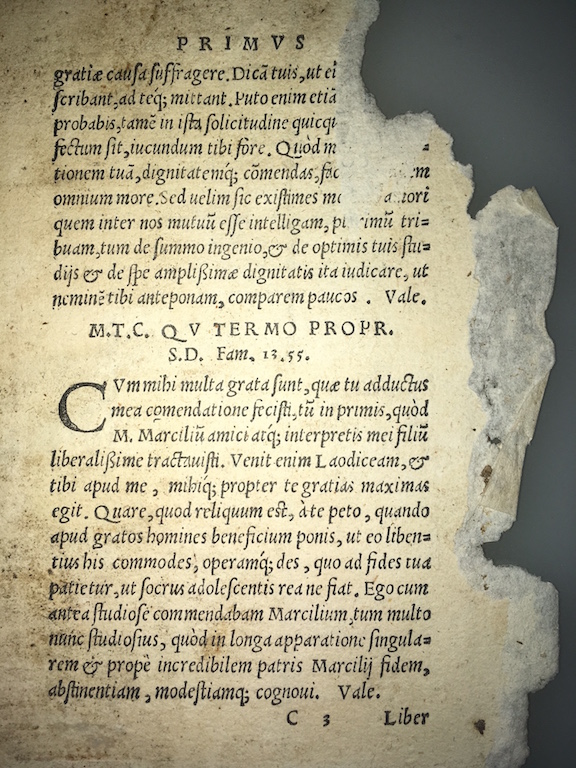 PRIMVS
gratiæ causa suffragere. Dicā tuis, ut ei
scribant, ad teq́; mittant. Puto enim etiā
probabis, tamē in ista solicitudine quicq
fectum sit, iucundum tibi fore. Quòd m
tionem tuā, dignitatemq́; cōmendas, fac m
omnium more. Sed uelim sic existimes me
quem inter nos mutuū esse intelligam, tri-
buam, tum de summo ingenio, & de optimis tuis stu-
dijs & de spe amplißimæ dignitatis ita iudicare, ut
neminē tibi anteponam, comparem paucos . Vale.
M.T.C. QV TERMO PROPR.
S.D. Fam. 13.55.
CVm mihi multa grata sunt, quæ tu adductus
mea comendatione fecisti, tū in primis, quòd
M. Marciliū amici atq́; interpretis mei filiū
liberalißime tractauisti. Venit enim Laodiceam, &
tibi apud me , mihiq́; propter te gratias maximas
egit. Quare, quod reliquum est, à te peto , quando
apud gratos homines beneficium ponis, ut eo liben-
tius his commodes, operamq́; des , quo ad fides tua
patietur, ut socrus adolescentis rea ne fiat. Ego cum
antea studiose commendabam Marcilium, tum multo
nunc studiosius, quòd in longa apparatione singula-
rem & propè incredibilem patris Marcilij fidem,
abstinentiam , modestiamq́; cognoui. Vale.
C 3 Liber